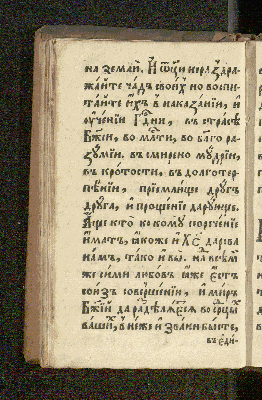 на земли. И҆ ѿц҃и нераздра-
жайте чадъ свои́хъ но воспи-
тайте и҆хъ в наказанїи, и
оученїи Гд҃ни, въ страсѣ
Бж҃їи, во мл҃ти, во бл҃го ра-
зꙋмїи. въ смирено мꙋдрїи,
въ кротости, въ долготер-
пѣнїи, прїемлище дрꙋгъ
дрꙋга, и҆ прощенїе дарꙋюще.
А҆ще кто̀ ко комꙋ пореченїе
и҆мать, ꙗкоже и҆ Хс҃ дарова
намъ, та́ко и҆ вы̀. на всѣм
же сими любовъ ꙗ҆же є҆стъ
союзъ соверше́нїи, и҆ миръ
Бж҃їй да раⷣдѣлѧ́етсѧ во срⷣцы
ваши, в̾ неже и҆ звани бысте,
въ еди-